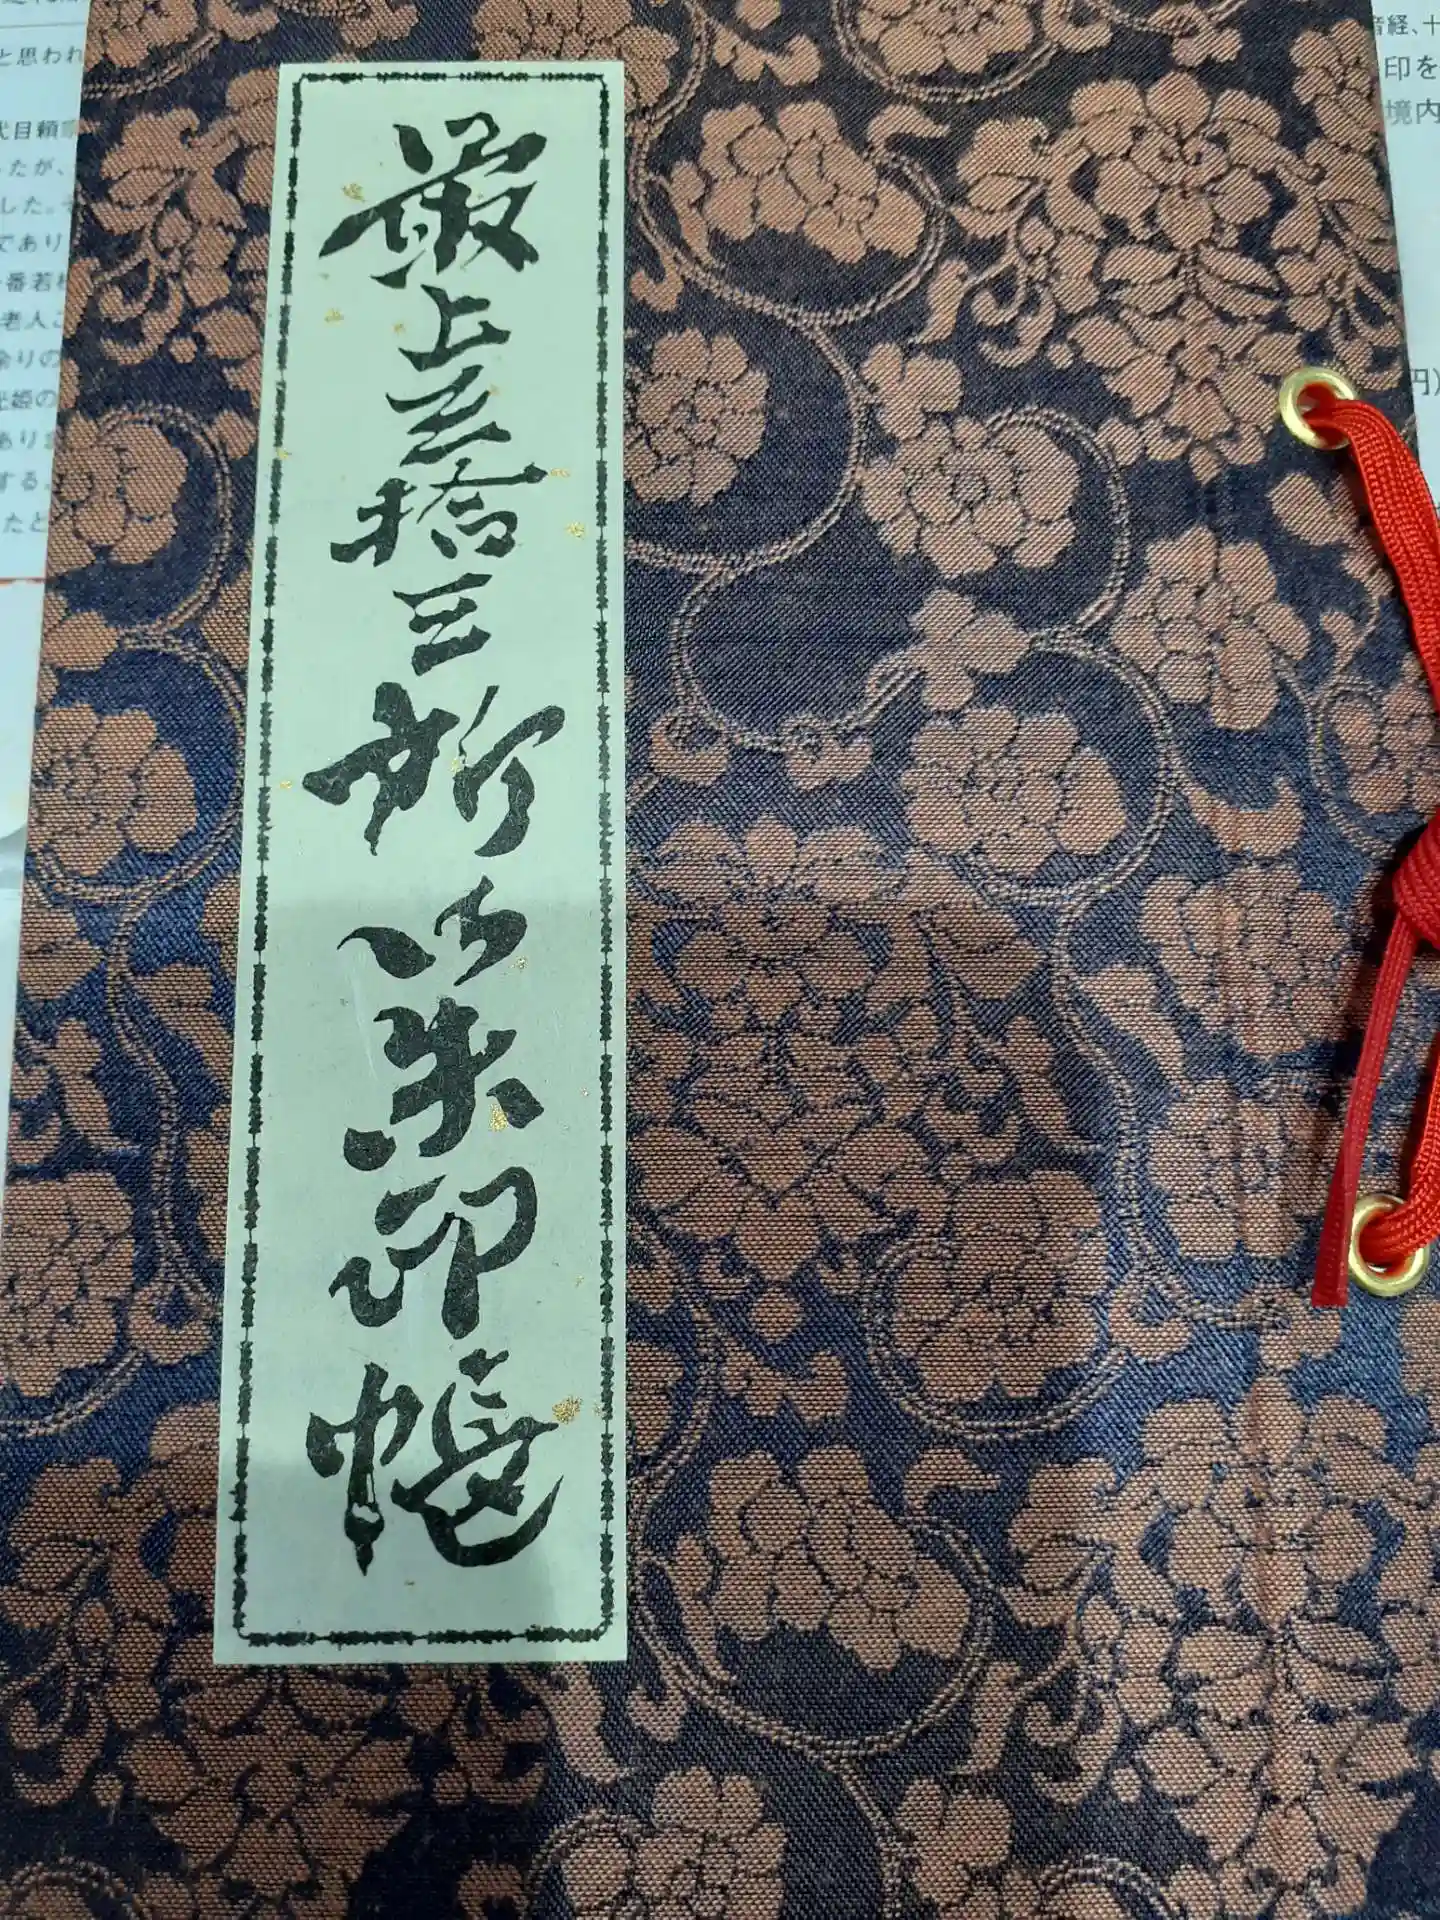 最上三拾三所御朱印帳
と思われ
代目頼
たが、
した。
であり
番若
老人
余りの
光姫の
あり
する。
たと
音経、十
印を
境内
円）